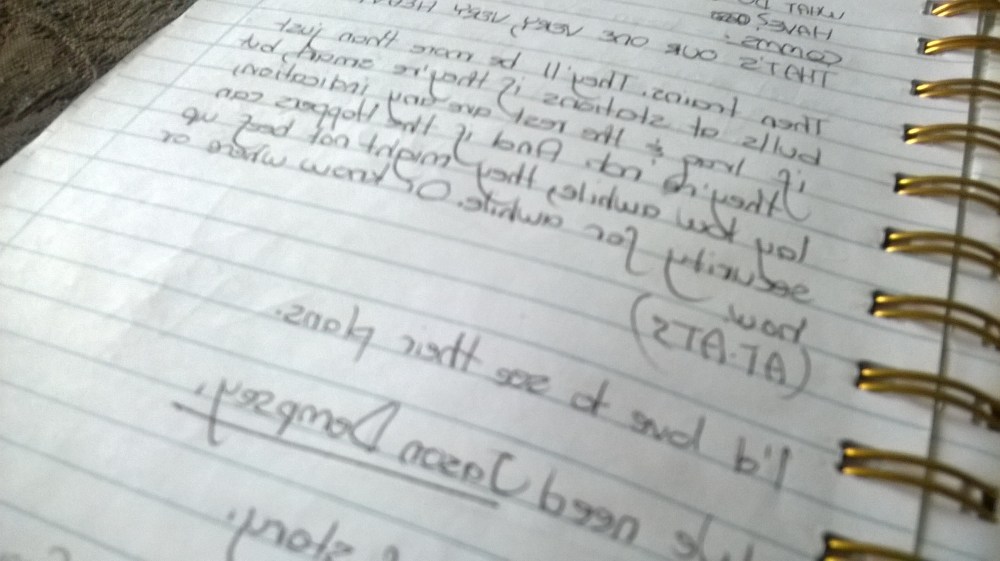 WHAT
HAVE?
COMMS:
THAT'S OUR ONE VERY, VERY
Then They'll be more than just
bulls at stations if they're smart, but
if & the rest are any indication,
they're not. And if the Hoppers can
lay low awhile, they might not beef up
security for awhile. Or know where or
how.
(AT-ATS)
I'd have to see their plans.
need Jason Dempsey.
story.